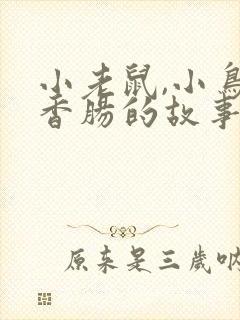 小老鼠,小鳥
香腸的故事
原来是三歲吶